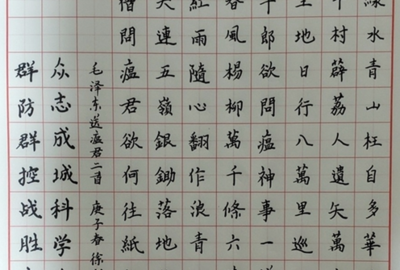 綠水青山枉自多華
村薜荔人遺矢萬
地日行八萬里巡
郎欲問瘟神事一
春風楊柳萬千條六
紅雨隨心翻作浪青
天連五嶺銀鋤落地
借問瘟君欲何往紙
毛泽东送瘟君二首 庚子春徐
众志成城科学
群防群控战胜